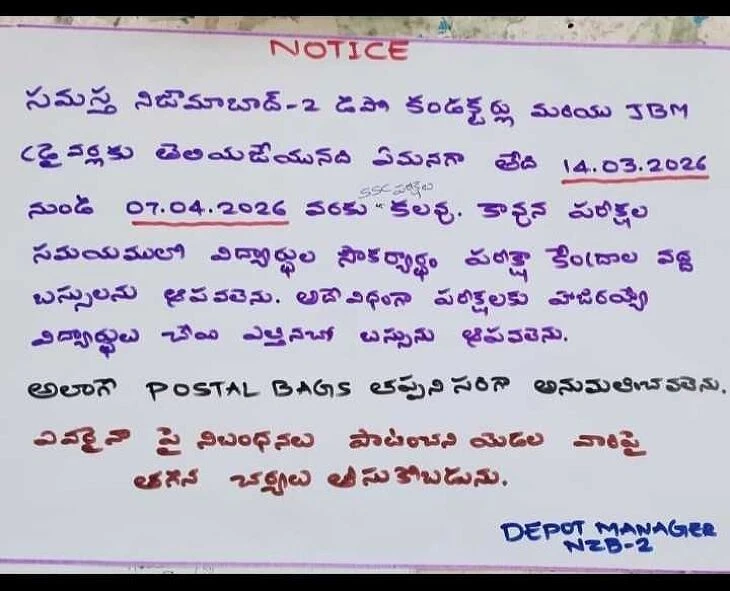 NOTICE
సమస్త నిజామాబాద్-2 డిపో కండక్టర్లు మరియు JBM
డ్రైవర్లకు తెలియజేయునది ఏమనగా తేది 14.03.2026
SSC పరీక్షలు
నుండి 07.04.2026 వరకు " కలవు. కావున పరీక్షల
సమయములో విద్యార్థుల సౌకర్యార్థం పరీక్షా కేంద్రాల వద్ద
బస్సులను ఆపవలెను. అదేవిధంగా పరీక్షలకు హాజరయ్యే
విద్యార్థులు చేయి ఎత్తినచో బస్సును ఆపవలెను.
అలాగే POSTAL BAGS తప్పనిసరిగా అనుమతించవలెను.
ఎవరైనా పై నిబంధనలు పాటించని యెడల వారిపై
తగిన చర్యలు తీసుకోబడును.
DEPOT MANAGER
NZB-2